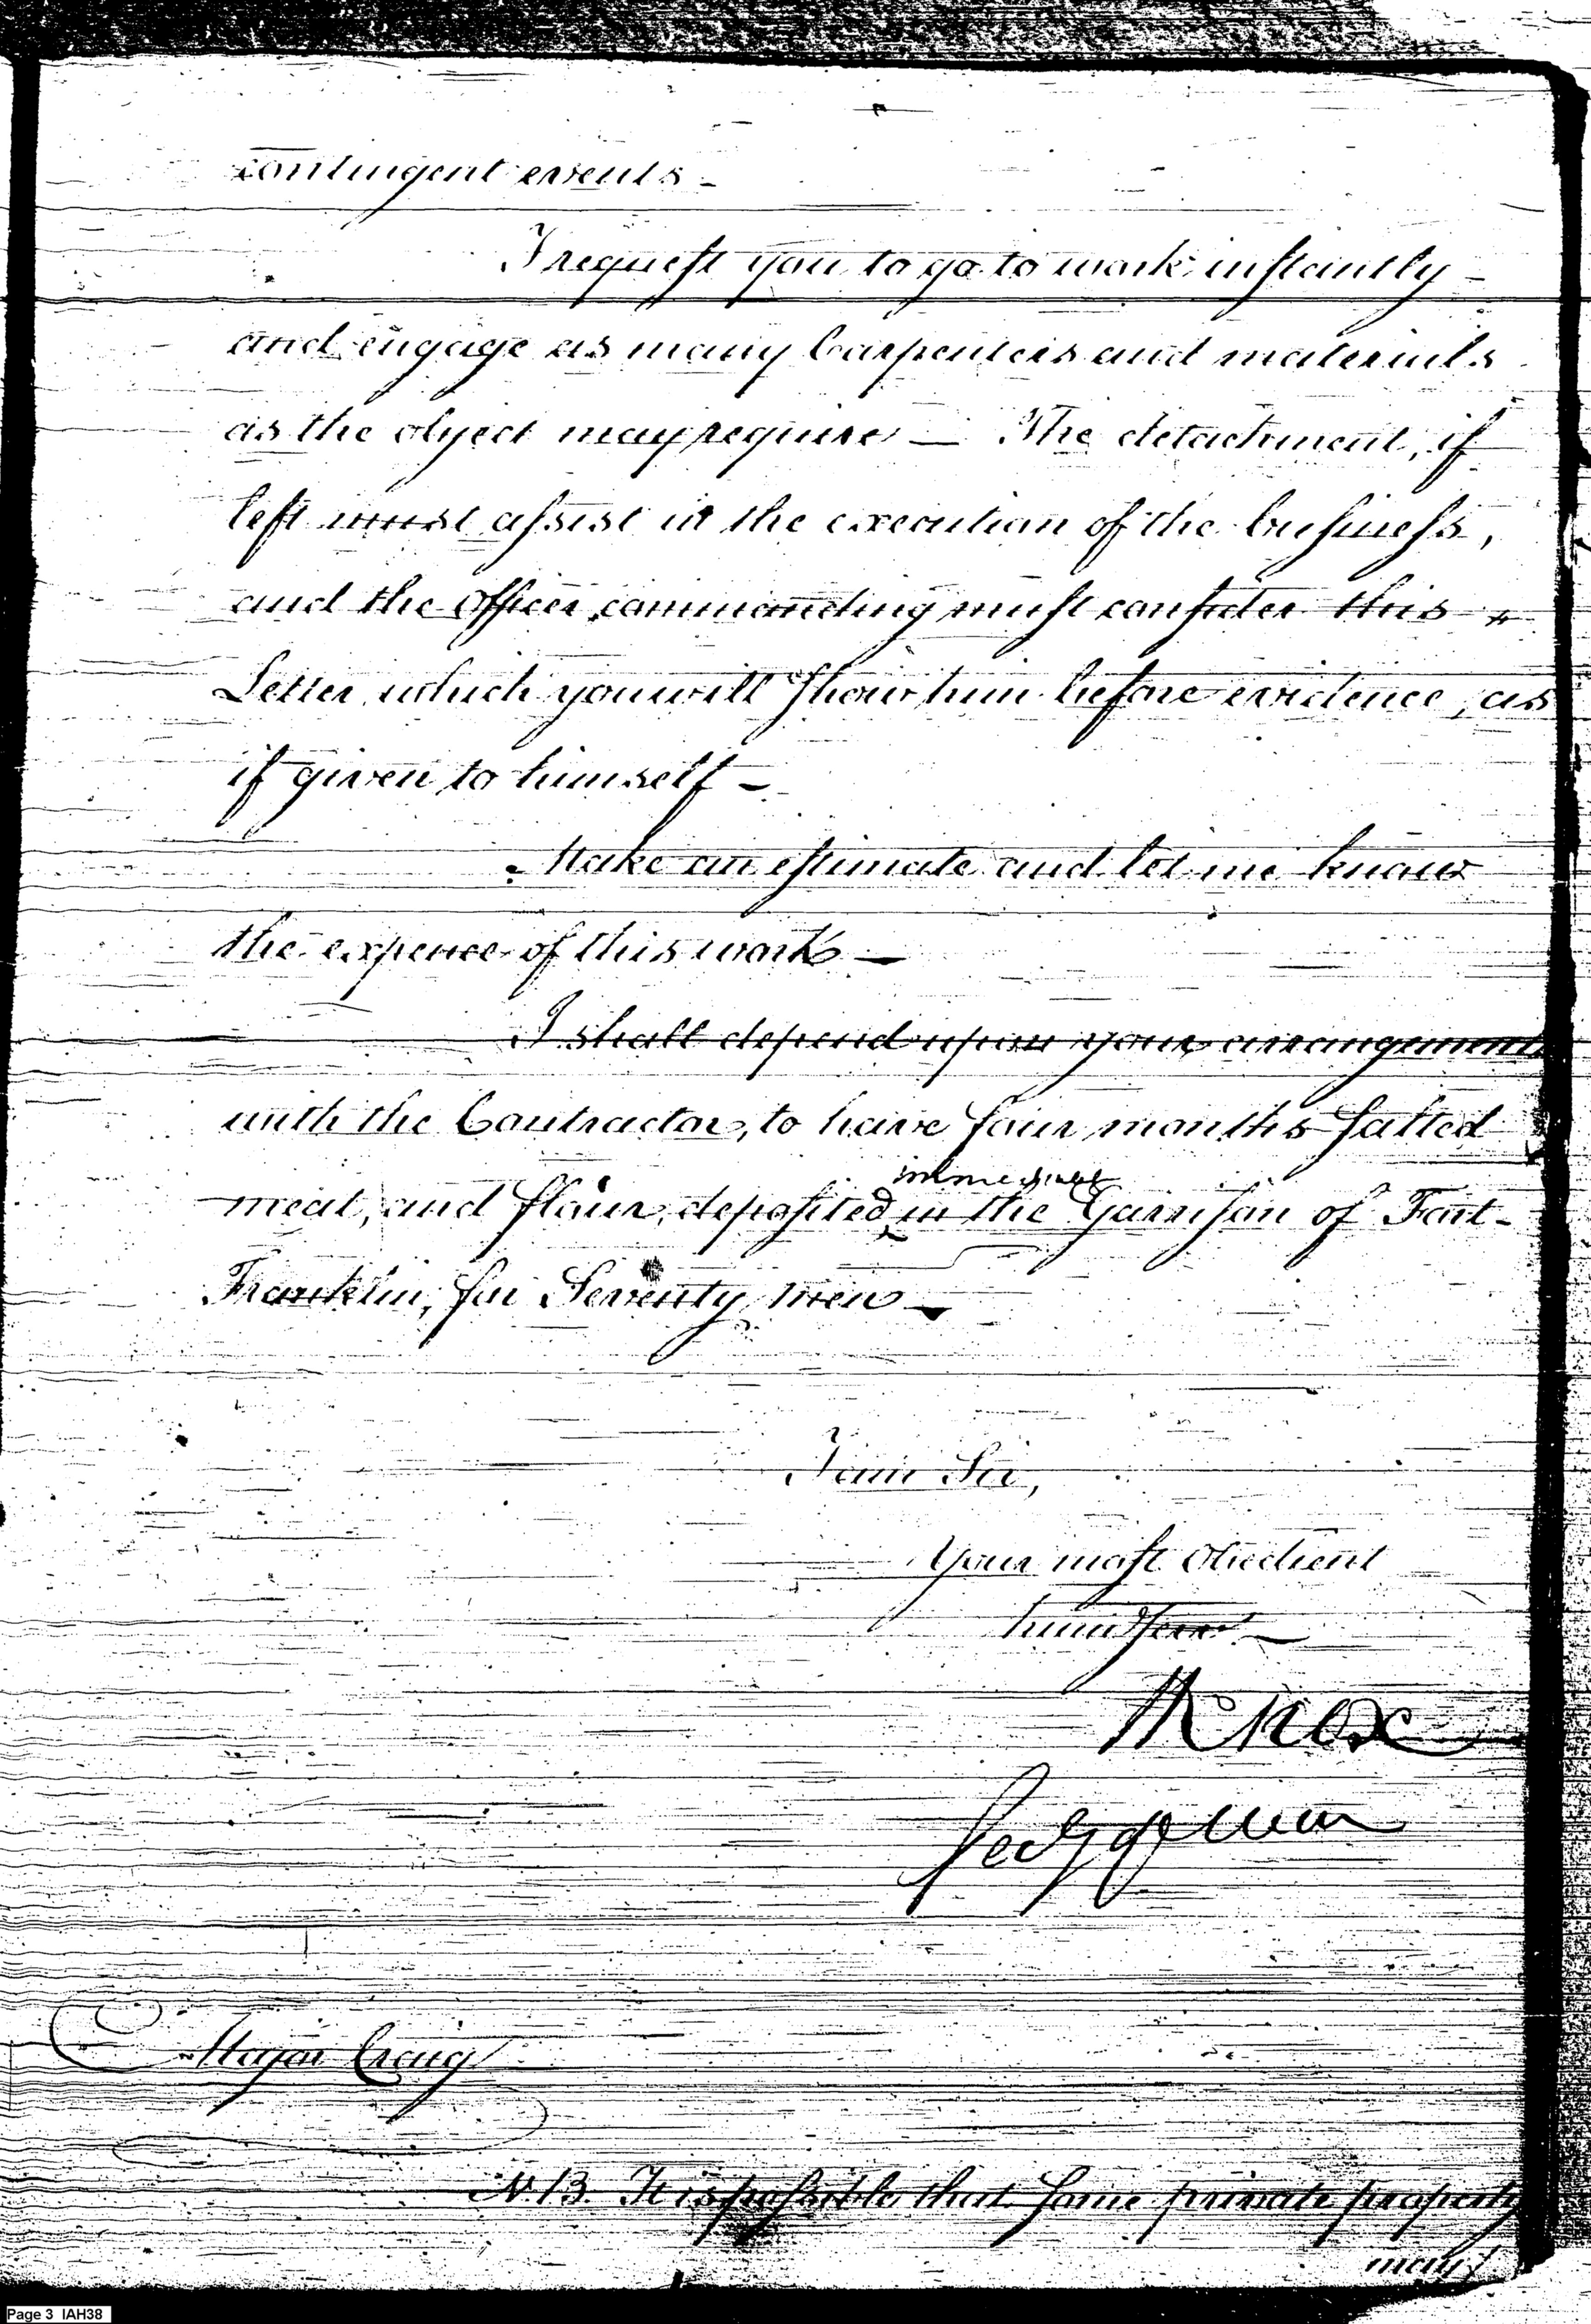 contingent events -
I request you to go to work instantly -
and engage as many Carpenters and materials
as the object may require — The detachment, if
left must assist in the execution of the business,
and the Officer commanding must consider this
Letter which you will show him before evidence, as
if given to himself -
Make an estimate and let me know
the expence of this work —
I shall depend upon your arrangements
with the Contractor, to have four months salted
immediately
meat, and flour, deposited in the Garrison of Fort-
Franklin, for Seventy men -
I am Sir,
Your most Obedient
hum Serv -
H Knox
Secy of War
Major Craig
N.B. It is possible that some private property
may
Page 3 IAH38